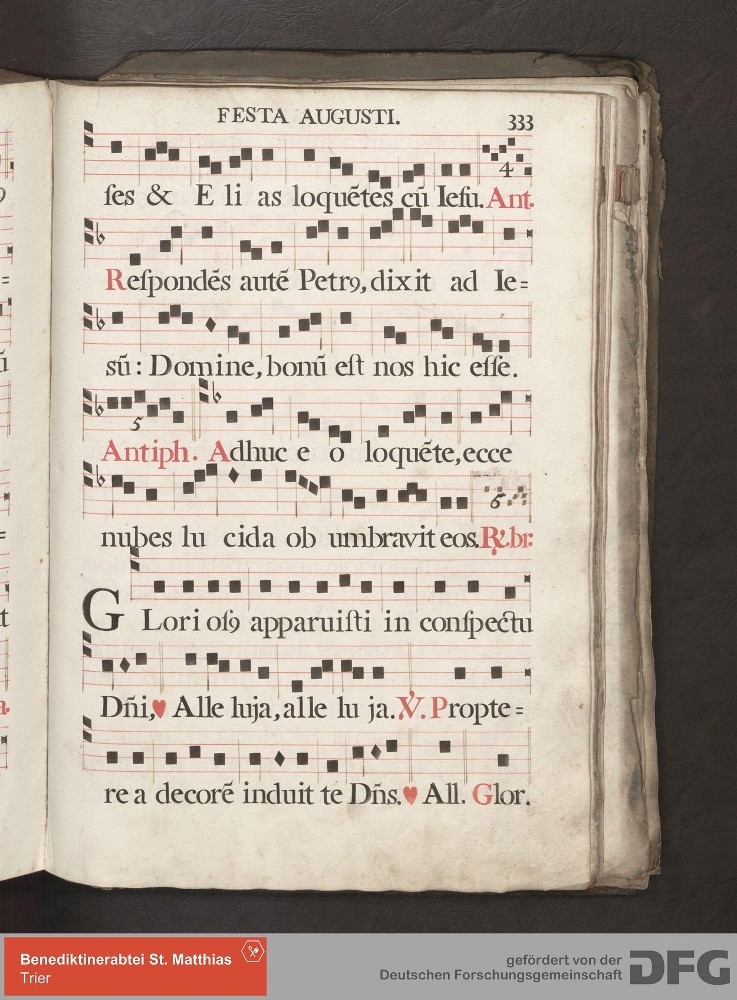 FESTA AUGUSTI. 333
4
ſes & E li as loquētes cū Ieſu. Ant.
Reſpondēs autē Petrꝰ, dixit ad Ie=
ſū: Domine, bonū eſt nos hic eſſe.
5
Antiph. Adhuc e o loquēte, ecce
6
nubes lu cida ob umbravit eos. ℟. br:
GLori oſꝰ apparuiſti in conſpectu
Dn̄i, ♥ Alle luja, alle lu ja. ℣. Propte=
re a decorē induit te Dn̄s. ♥ All. Glor.
Benediktinerabtei St. Matthias
Trier
gefördert von der
Deutschen Forschungsgemeinschaft DFG